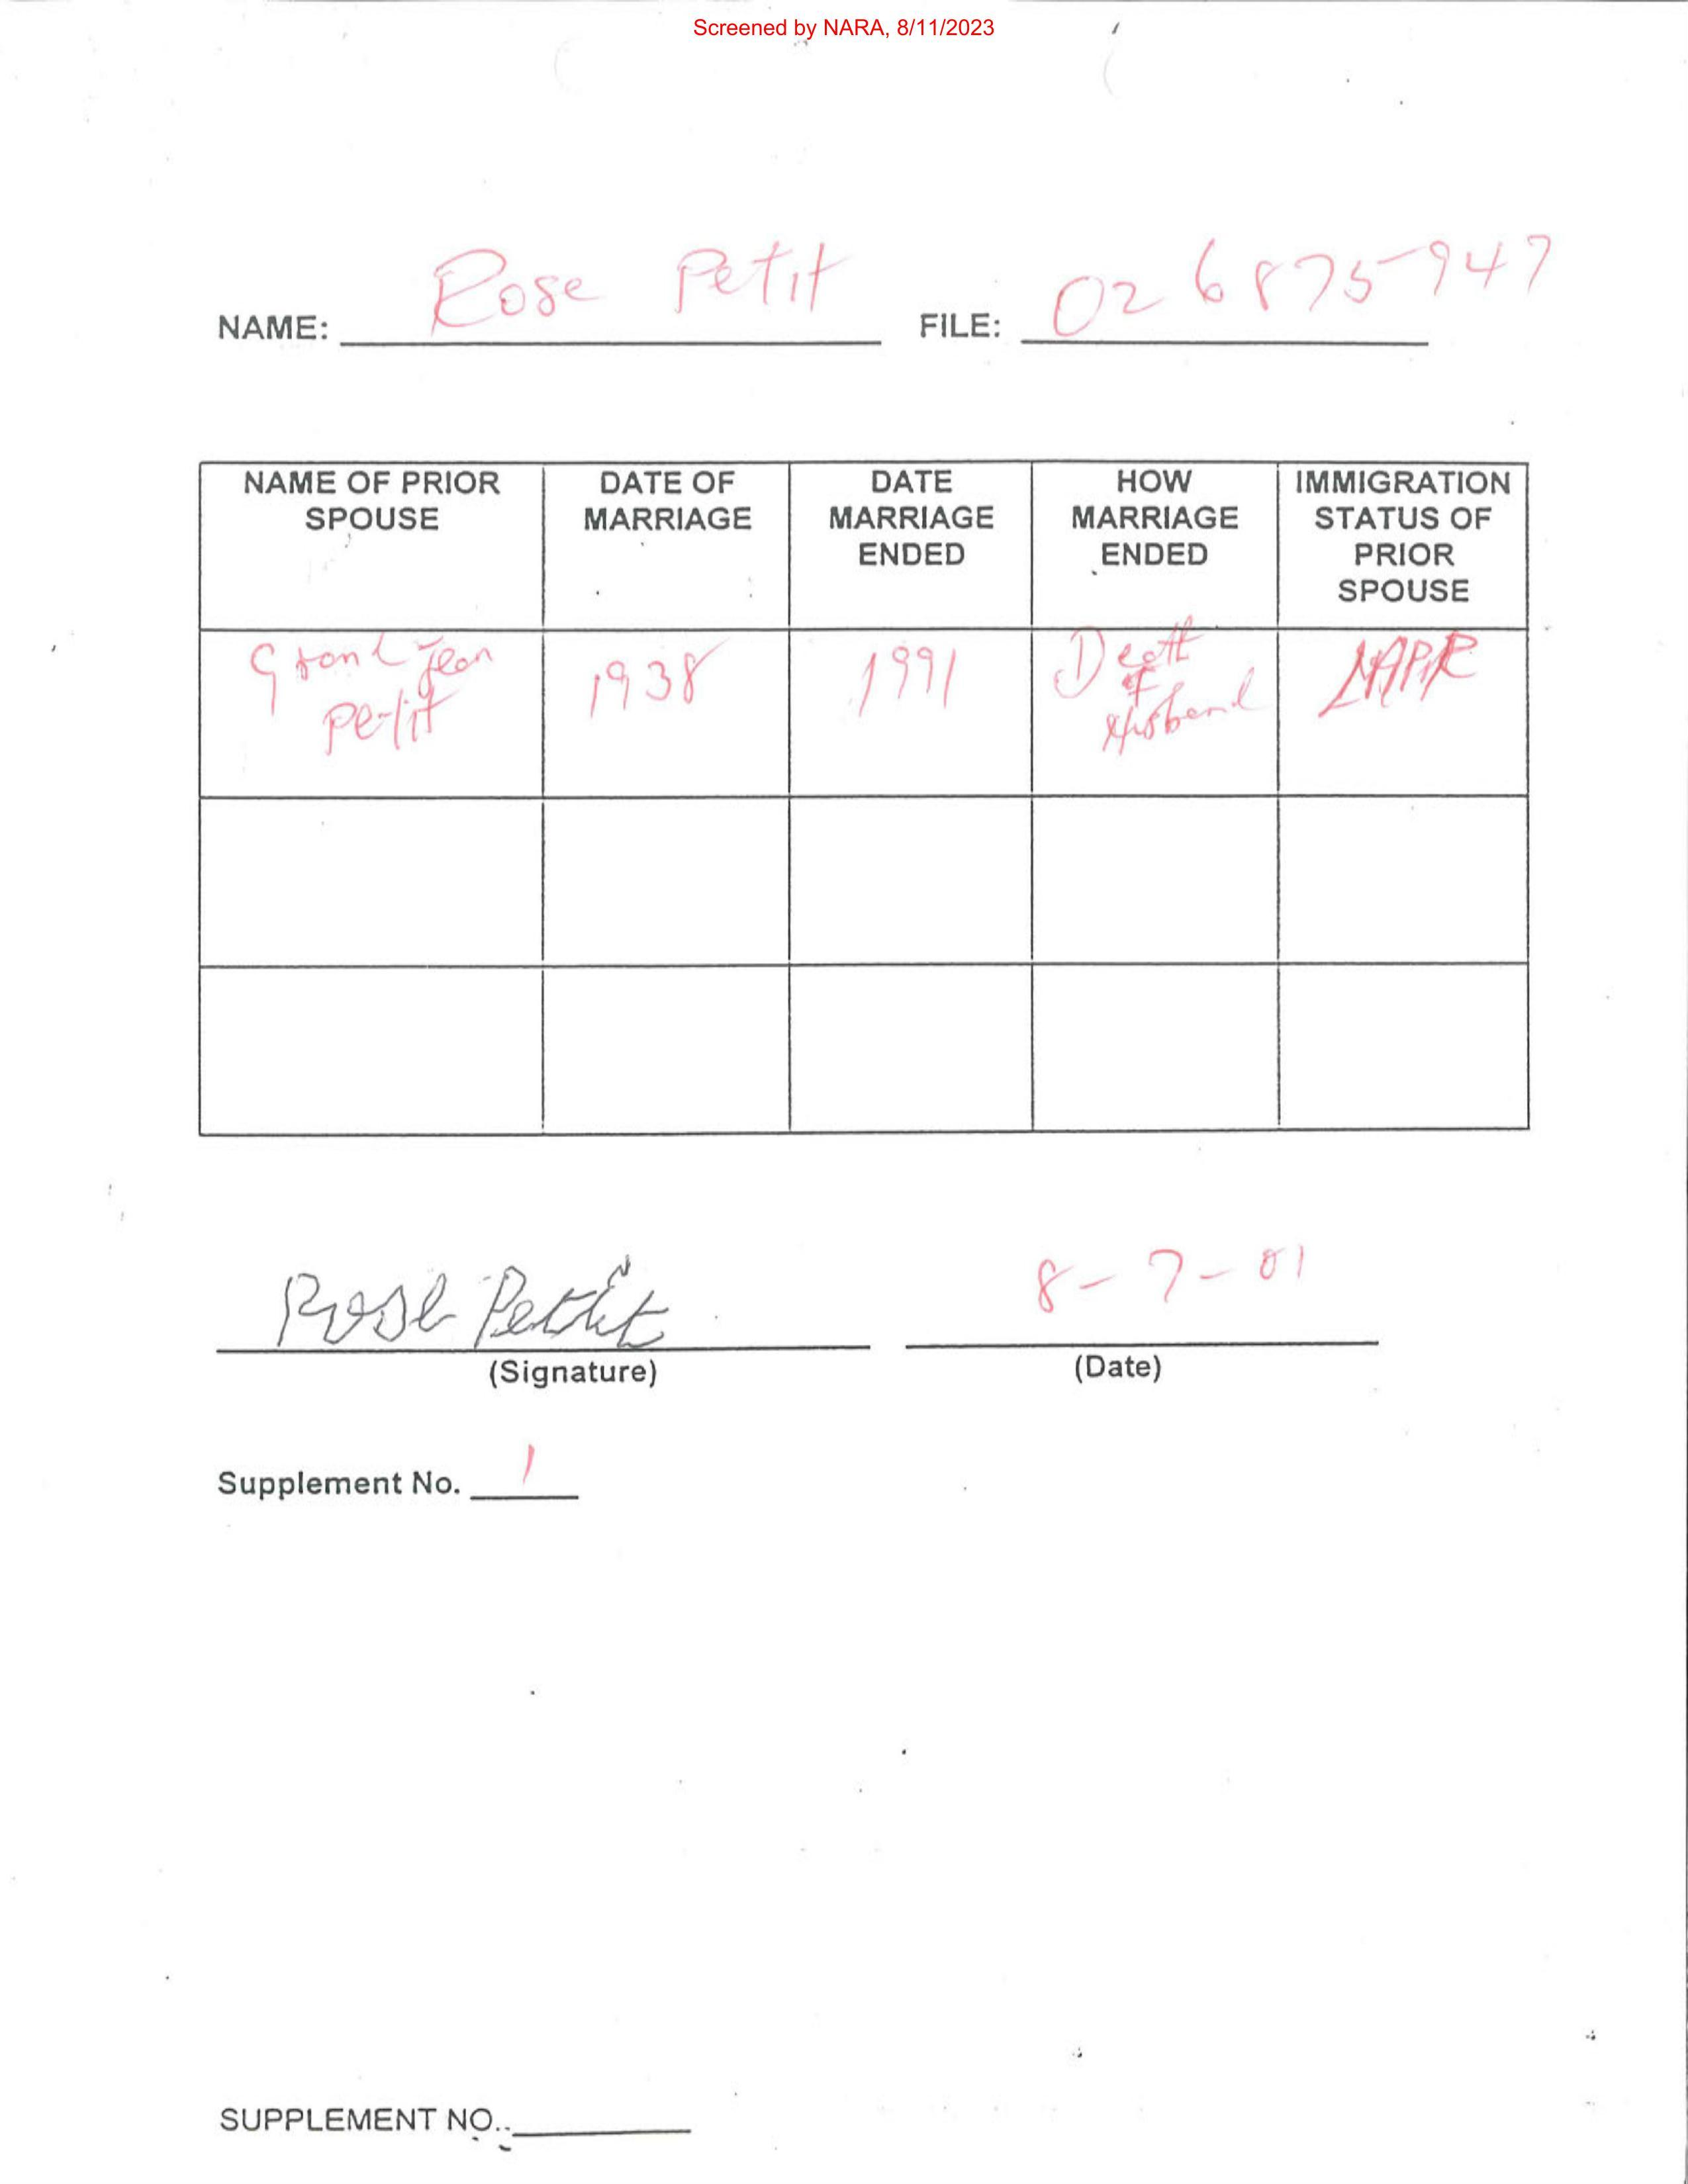 Screened by NARA, 8/11/2023
NAME: Rose Petit FILE: 026875947
NAME OF PRIOR SPOUSE DATE OF MARRIAGE DATE MARRIAGE ENDED HOW MARRIAGE ENDED IMMIGRATION STATUS OF PRIOR SPOUSE
Grand Jean 1938 1991 Death
Petit of Husband
Rose Petit 8-7-01
(Signature) (Date)
Supplement No. 1
SUPPLEMENT NO.